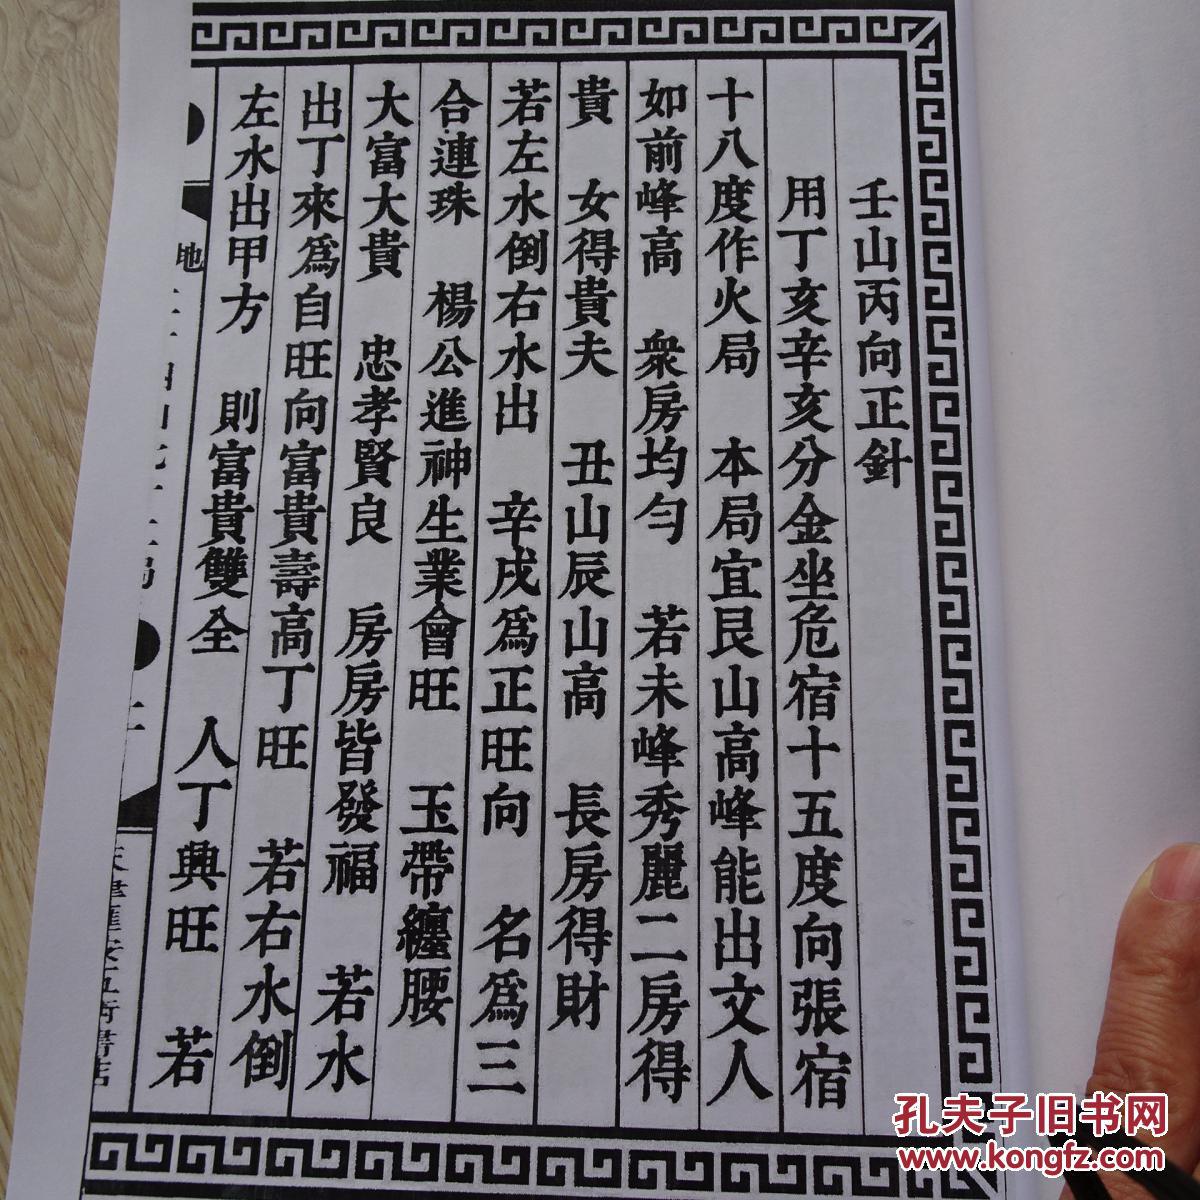 壬山丙向正針
用丁亥辛亥分金坐危宿十五度向張宿
十八度作火局 本局宜艮山高峰能出文人
如前峰高 衆房均勻 若未峰秀麗二房得
貴 女得貴夫 丑山辰山高 長房得財
若左水倒右水出 辛戌為正旺向 名為三
合連珠 楊公進神生業會旺 玉帶纏腰
大富大貴 忠孝賢良 房房皆發福 若水
出丁來為自旺向富貴壽高丁旺 若右水倒
左水出甲方 則富貴雙全 人丁興旺 若
地
孔夫子旧书网
www.kongfz.com